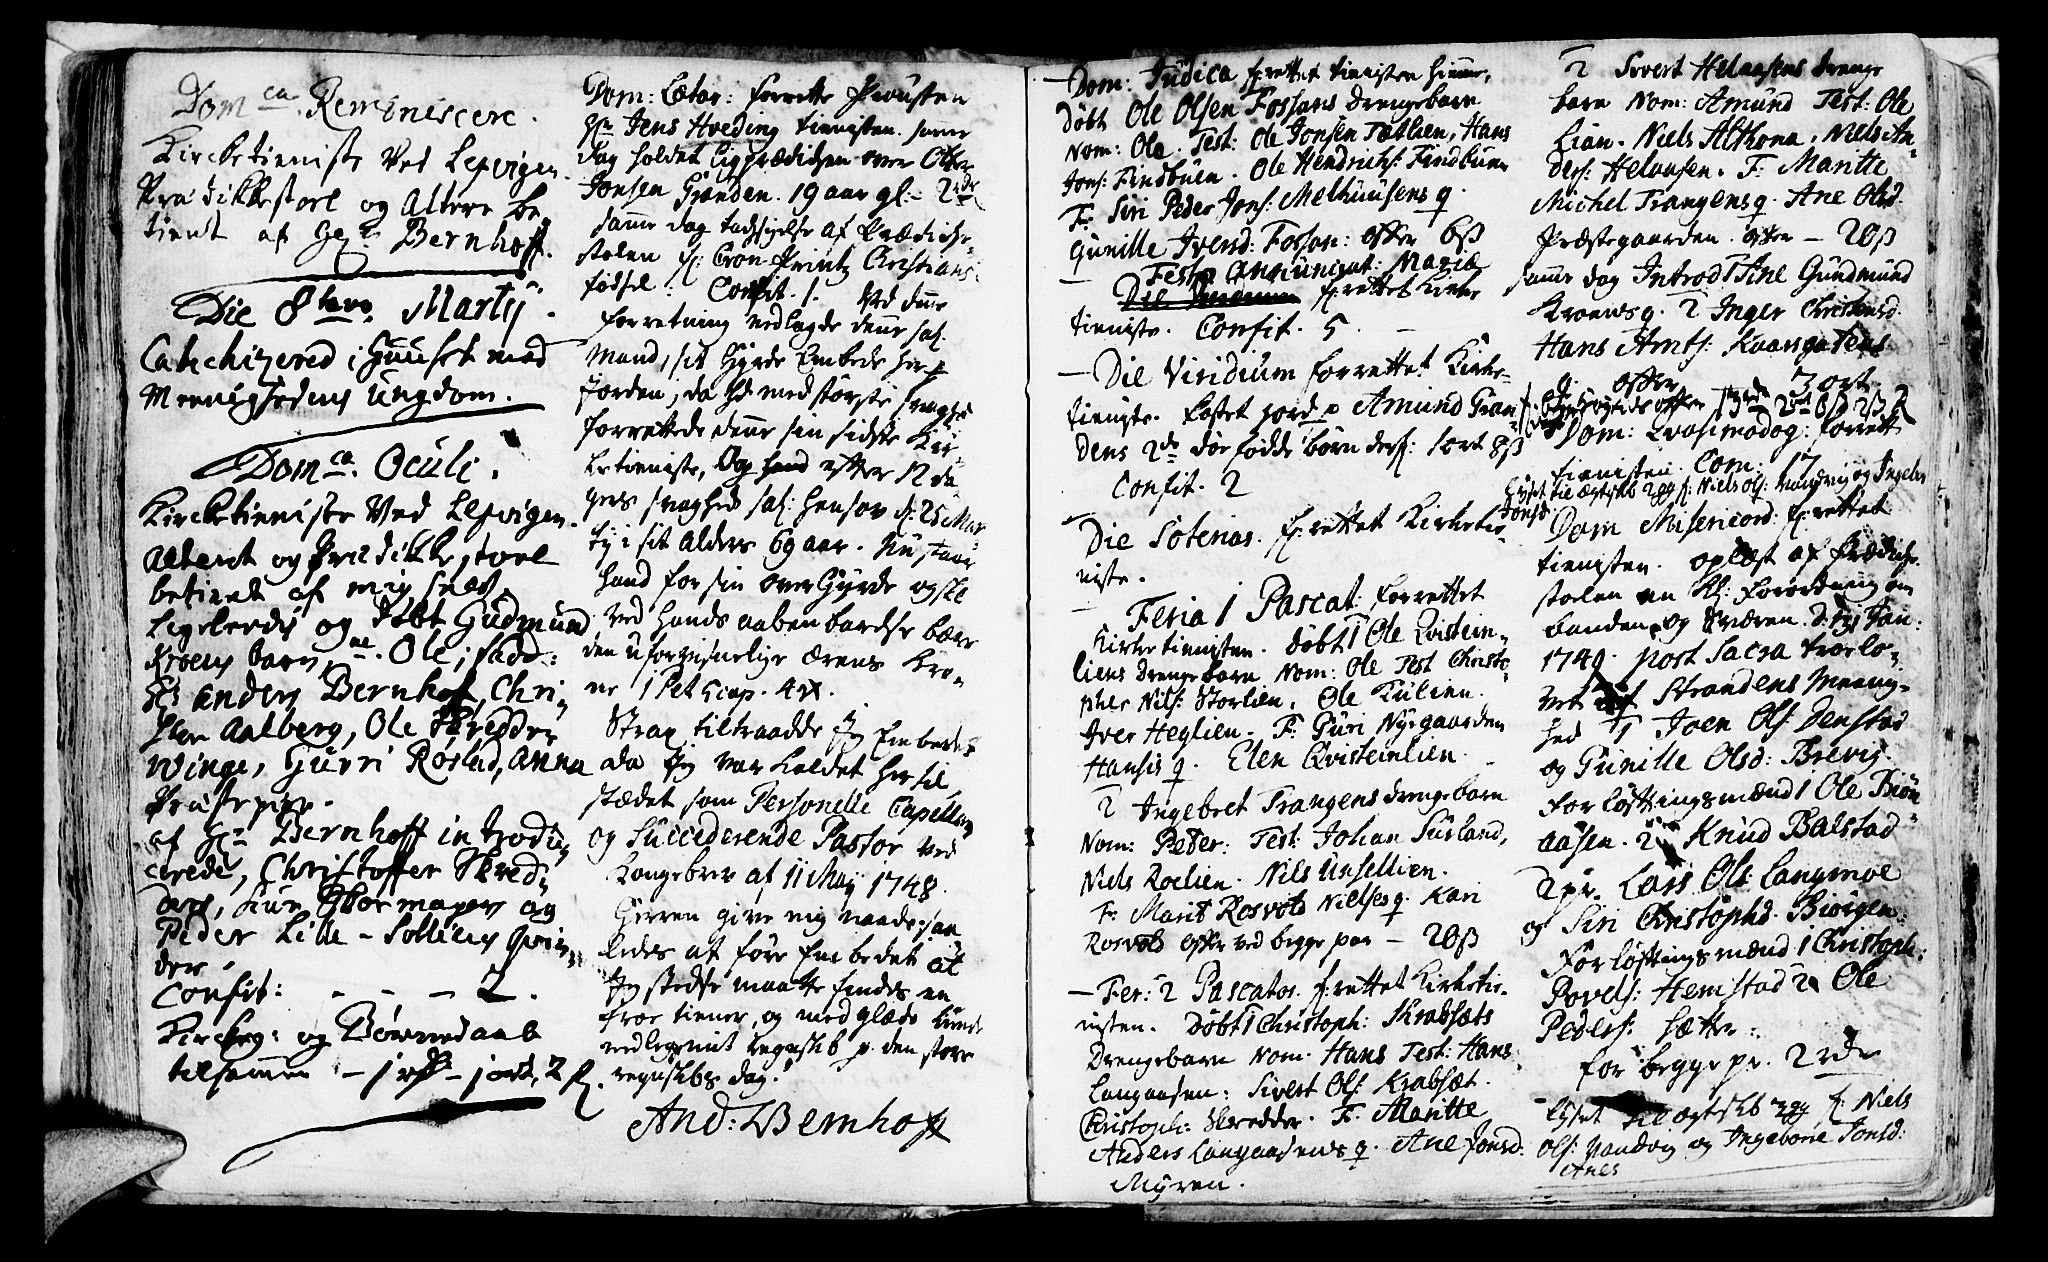 Dom ca Reminiscere.
Kircketieniste Ved Lexvigen.
Prædikkestoel og Altere be,
tient af Hr Bernhoff.
Die 8tavo Martij.
Catechizered i Huuset med
Meenighedens Ungdom.
Dom ca. Oculi.
Kircketieniste Ved Lexvigen.
Alteret og Prædikke,stoel
betient af mig
og döbt Gudmund
Kroens barn, Ole; fadd:
Hr Anders Bernhof, Chri,
sten Aalberg, Ole Skredder
Winge, Gurri Röstad, Anna
Præstepige.
af Hr Bernhoff introdu,
cerede, Christoffer Skred,
ders, og
Peder Lille-Solliens Qvin,
der
Confit: - - - 2.
Kirckeg: og Börnedaab
tilsammen - 1 rd - 1 ort, 2 ß.
Dom: Lætar: forrette Provsten
Hr Jens Hveding tienisten. samme
dag holdet Ligprædicken over Oluf
Jonsen Grønden. 19 aar gl: - 2 rdr
samme dag tachsigelse af Prædicke-
stolen f: Cron Printz Christians
födsel: Confit. 1. Ved denne
forretning nedlagde denne sal.
Mand, sit Hyrde Embede her p
Jorden, da hand med störste svaghed
forrettede denne sin sidste Kir-
ketieniste, Og hand efter 12 da
gers svaghed sal: hensov d: 25 Mar
tij i sit Alders 69 aar. Nu staar
hand for sin Over Hyrde og skal
ved hands aabenbarelse bære
den uforvisnelige ærens Kro-
ne 1 Pet 5 cap. 4 v.
Strax tiltraadde Jeg Embedet
da Jeg var kaldet her til
stædet som Personelle Capellan
og Succederende Pastor ved
Kongebrev af 11 Maij 1748.
Herren give mig naade saa
ledes at före Embedet at
Jeg stedse maatte findes en
troe tiener, og med glæde kunde
nedlegge mit regnskb p. den store
regnskbs dag.
And: Bernhoft
Dom: Judica f:rettet tienisten hiemme,
döbt Ole Olsen Fossans drengebarn
Nom: Ole. Test: Ole Jonsen Tetlien, Hans
Jons: Findbuen. Ole Hendrichs: Findbuen
F: Siri Peder Jons: Melhuusens q.
Gunille Iversd: Fossan: offer 6ß
Festo Annunciat: Mariæ
f:rettet Kirke
tieniste. Confit. 5.
- Die Viridium forrettet Kirke-
tieniste. kastet jord p Amund Tran
dens 2de döe födde börn ders: sort 8ß
Confit. 2
Die Soterias. f:rettet Kirketie-
niste.
Feria 1 Pascat: forrettet
Kirketienisten. döbt 1 Ole Qvistein-
liens drengebarn Nom: Ole Test Christo-
pher Nils: Storlien, Ole Kulien.
Iver Heglien. F: Guri Nygaarden
Hansis q. Elen Qvisteinlien.
2 Ingebret Trangens drengebarn
Nom: Peder: Test: Johan Surland,
Niels Roelien. Nils Unsellien.
F: Marit Rosvold Nielses q. Kari
Rosvold offer ved begge par - 20ß
- Fer: 2 Pascatos. f:rettet Kirketie-
nisten. Döbt 1 Christoph: Skrabsæts
drengebarn Nom. Hans Test: Hans
Langaasen: Sivert Ols: Krabsæt.
Christoph: Skredder. F: Maritte
Anders Langaasens q. Ane Jonsd:
Myren.
2 Sivert Helaasens drenge
barn Nom: Amund Test: Ole
Lian. Niels Althona. Niels An-
ders: Helaasen. F: Maritte
Michel Trangens q. Ane Olsd.
Præstegaarden. offer - 20ß
samme dag Introd 1 Ane Gundmund
Kroens q. 2 Inger Christensd.
Hans Arnts: Kaarsgatens
q. offer 3 ort
Dom: Qvasimodog: forrett
tienisten. Com: 17
Lyset til ægtskb 2 gg f: Niels Ols: Vandvig og Ingebor
Jonsd.
Dom Misericord: f:rettet
tienisten. oplæst af Prædicke-
stolen en Kl: Forordning om
banden og Sværen. d: 17 Jan:
1749. post Sacra trolo-
vet af Strandens Meenig-
hed 1 Joen Ols: Denstad
og Gunille Olsd: Brevig.
Forlöftningsmænd 1 Ole Biön
aasen. 2 Knud Balstad
2 pr. Lars Ols: Langmoe
og Siri Christophd. Biörgen:
Forlöftningsmænd 1 Christoph:
Povels: Hemstad 2 Ole
Peders: Sætter:
for begge pr. 2 rdr
Lyset til ægtskb 3 gg f: Niels
Ols: Vandvig og Ingeborre Jonsd:
Anes